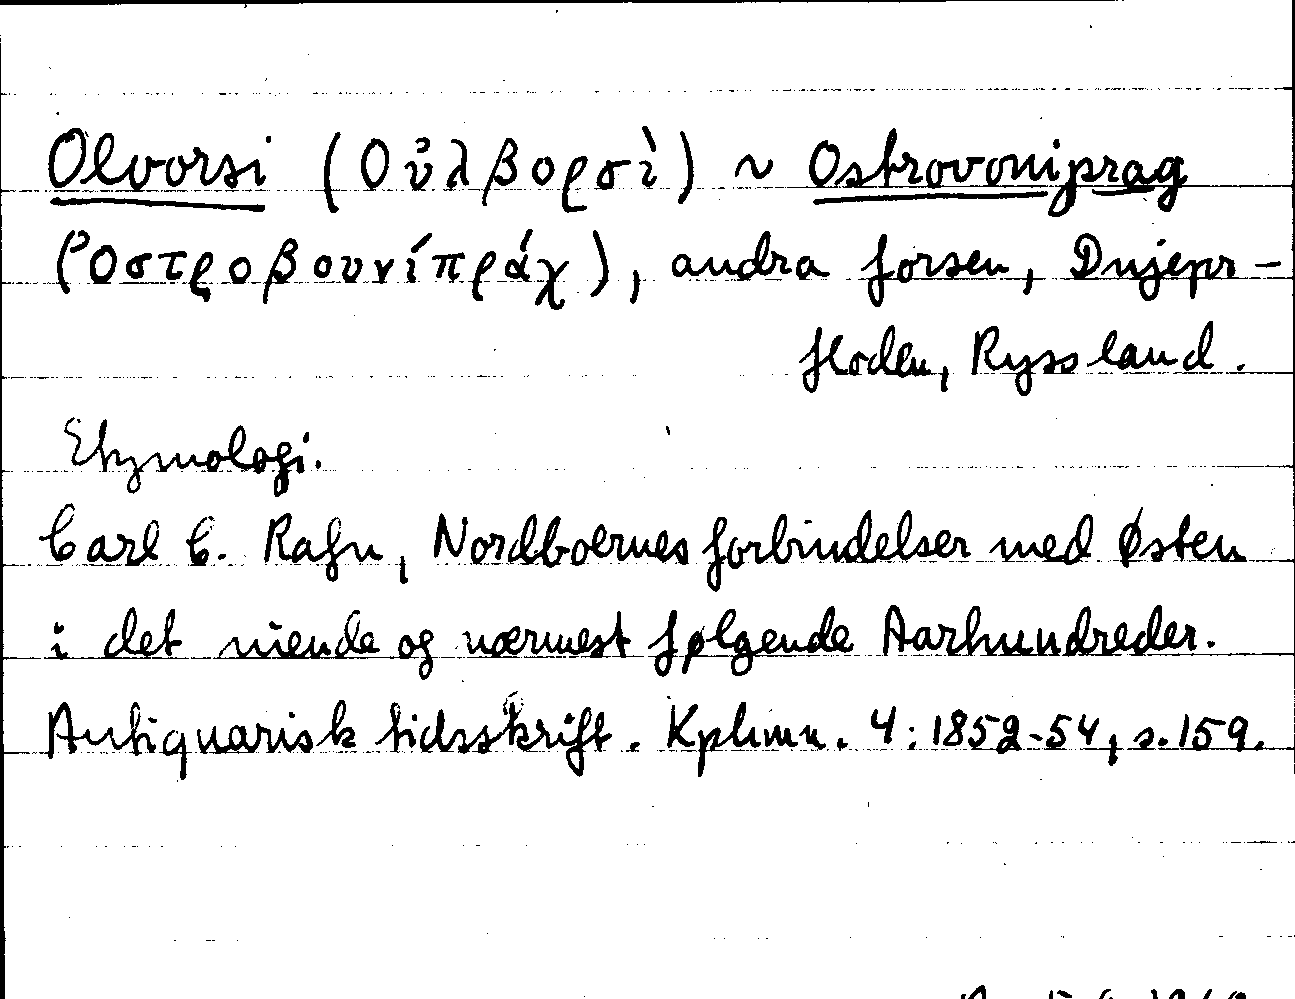 Olvorsi (Οὐλβορσὶ) ~ Ostrovoniprag
(Ὀστροβουνίπράχ), andra forsen, Dnjepr-
floden, Ryssland.
Etymologi.
Carl C. Rafn, Nordboernes forbindelser med Østen
i det niende og nærmest følgende Aarhundreder.
Antiquarisk tidsskrift. Kphmn. 4:1852-54, s.159.